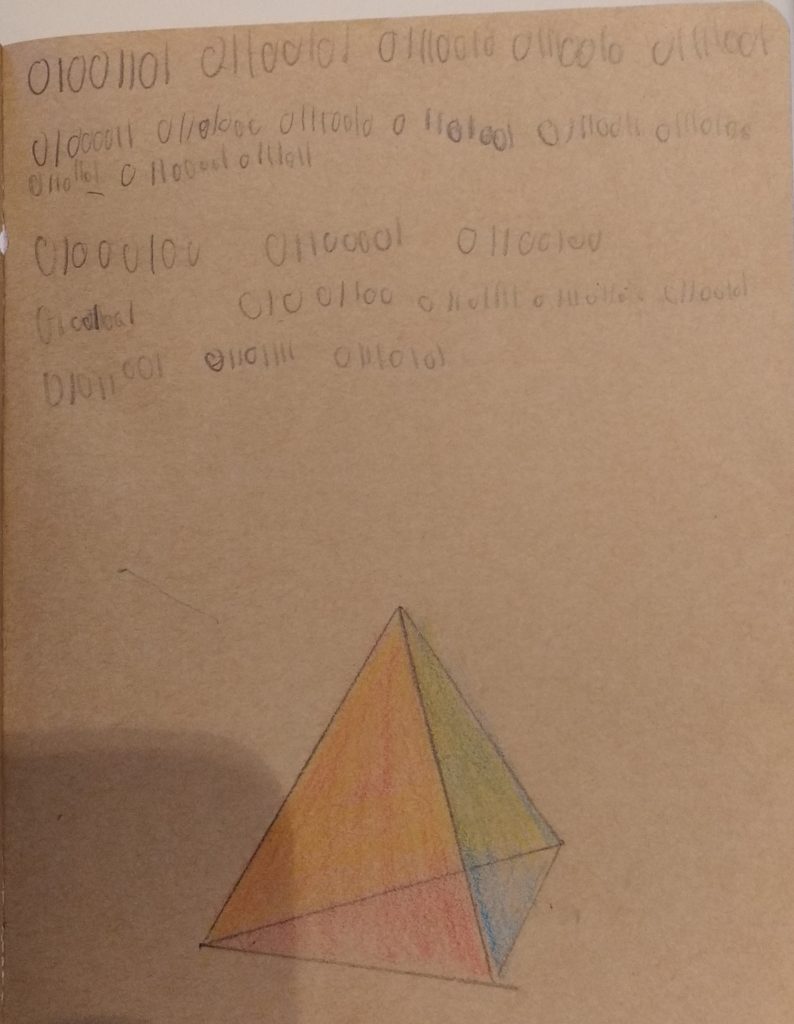 01001101 01100101 01110010 01110010 01111001
01000011 01101000 01110010 01101001 01110011 01110100
01101101 01100001 01110011
01000100 01100001 01100100
01001100 01101111 01110110 01100101
01011001 01101111 01110101